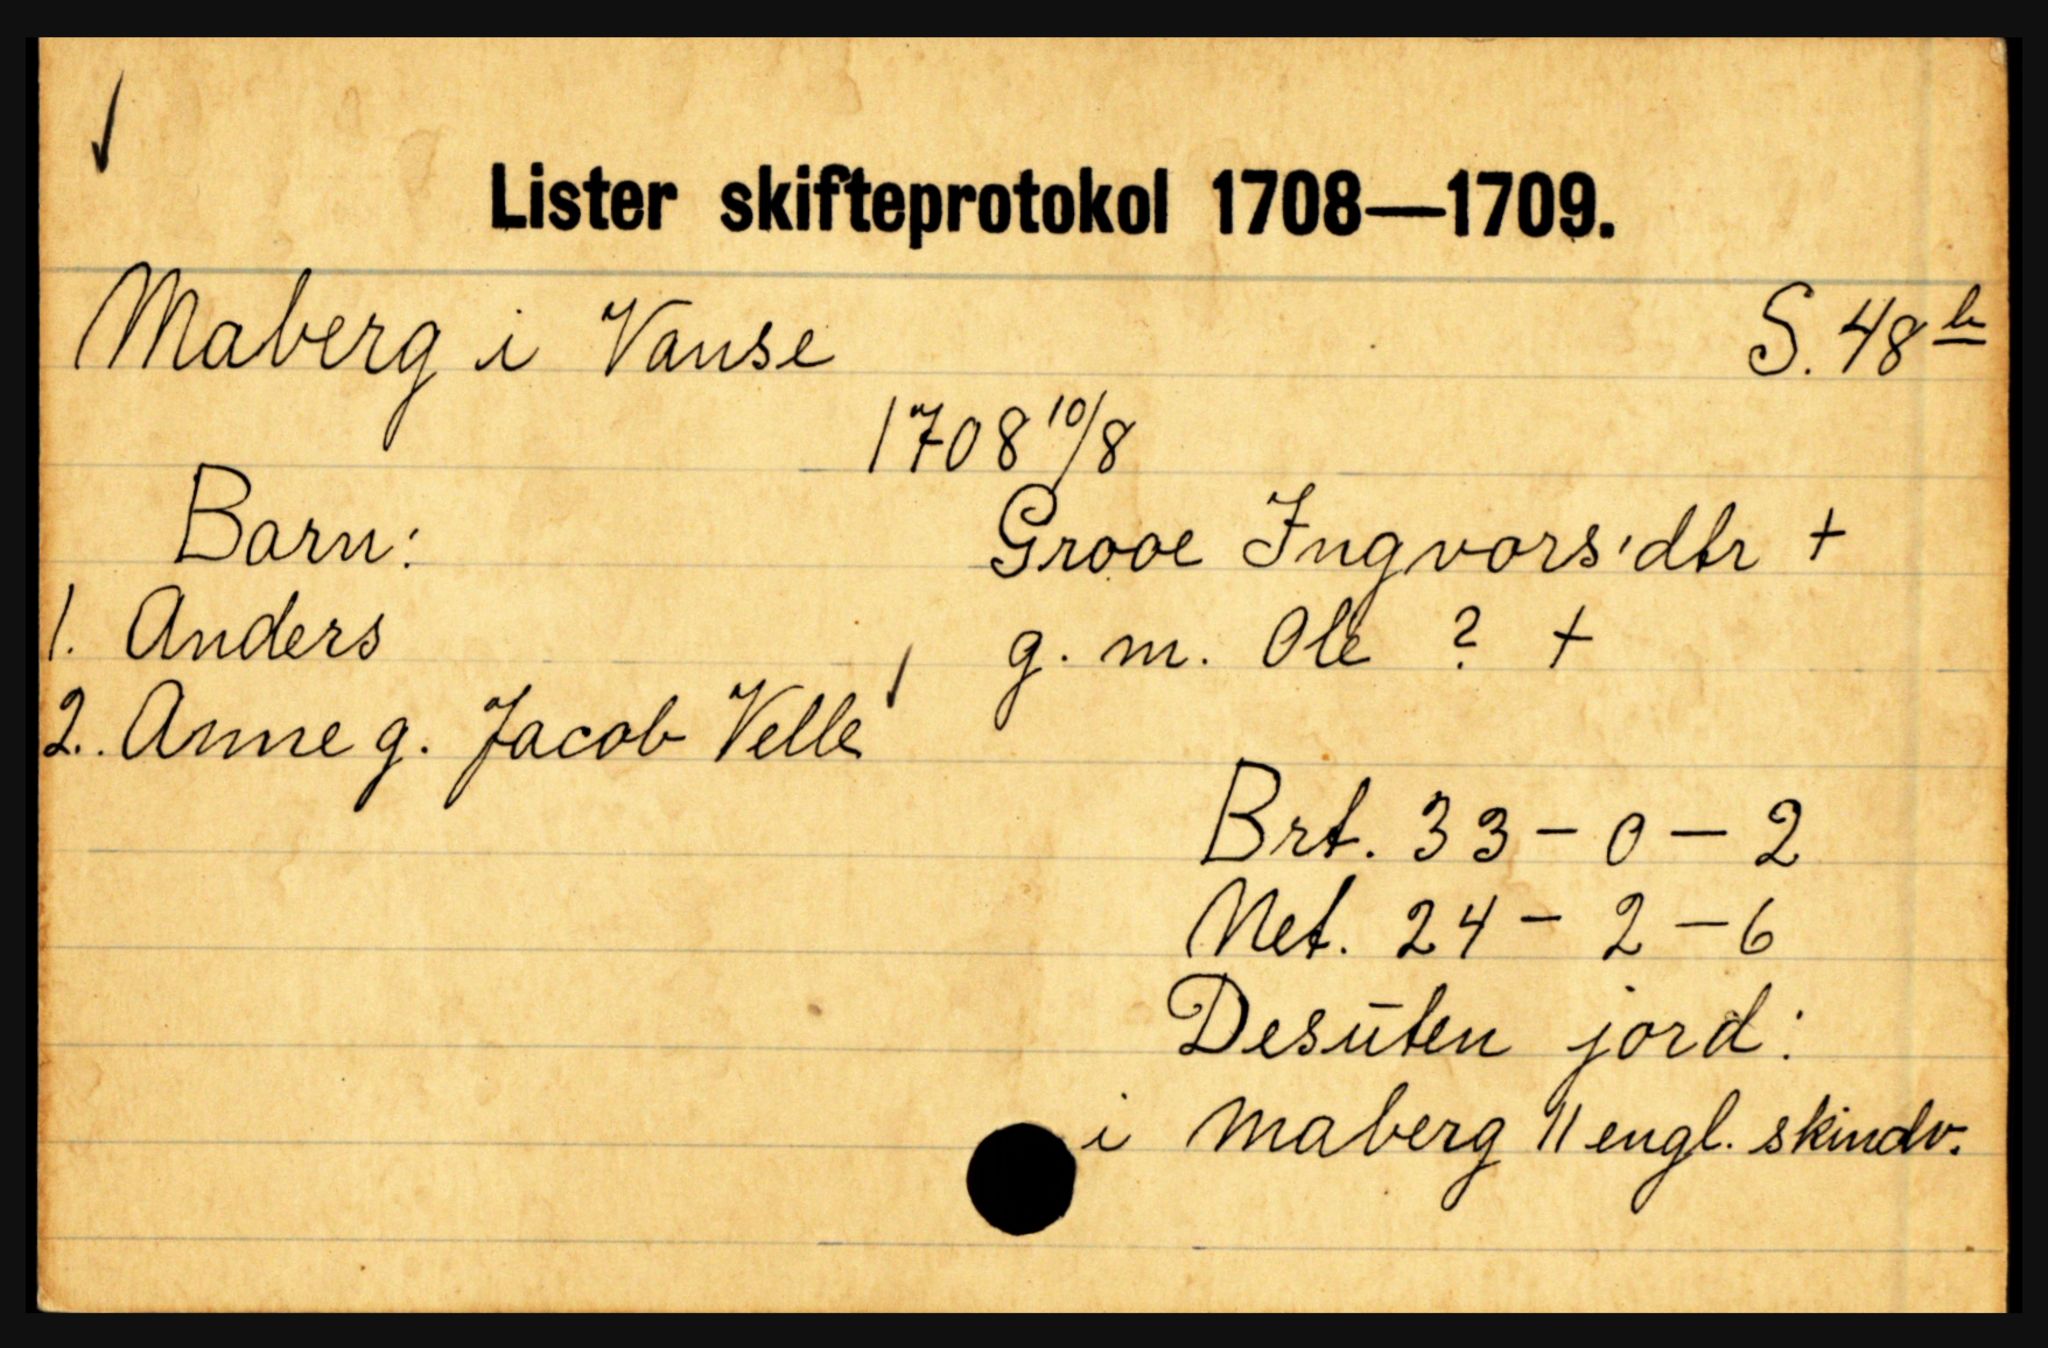 Lister skifteprotokol 1708—1709.
Maberg i Vanse S. 48 b
1708 10/8
Barn: Grooe Ingvors'dtr +
1. Anders g. m. Ole ? +
2. Anne g. Jacob Velle
Brt. 33 – 0 – 2
Net. 24 – 2 – 6
Desuten jord:
i Maberg 11 engl. skindv.